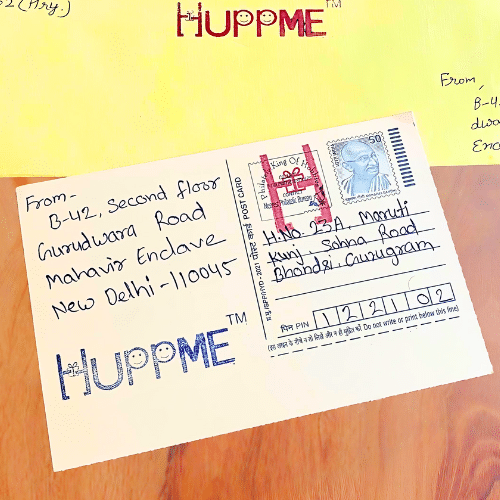 52 (Hry.)
HUPPME™
From,
B-4
Encl
From -
B-42, Second floor
Gurudwara Road
Mahavir Enclave
New Delhi - 110045
HUPPME™
POST CARD
50
H.No. 23A, Maruti
Kunj, Sohna Road
Bhondsi, Gurugram
पिन PIN 122102
(इस लाइन के नीचे न तो लिखें और न ही मुद्रित करें. Do not write or print below this line)